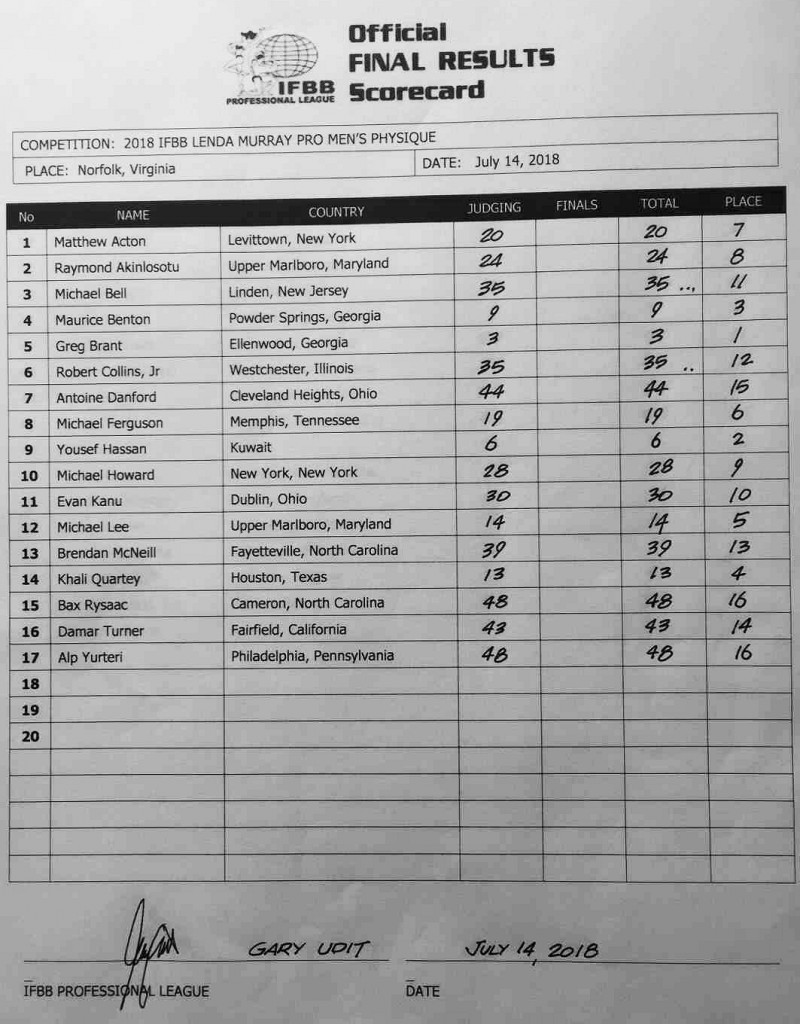 Official
FINAL RESULTS
Scorecard
IFBB
PROFESSIONAL LEAGUE
COMPETITION: 2018 IFBB LENDA MURRAY PRO MEN'S PHYSIQUE
PLACE: Norfolk, Virginia DATE: July 14, 2018
No NAME COUNTRY JUDGING FINALS TOTAL PLACE
1 Matthew Acton Levittown, New York 20 20 7
2 Raymond Akinlosotu Upper Marlboro, Maryland 24 24 8
3 Michael Bell Linden, New Jersey 35 35 ... 11
4 Maurice Benton Powder Springs, Georgia 9 9 3
5 Greg Brant Ellenwood, Georgia 3 3 1
6 Robert Collins, Jr Westchester, Illinois 35 35 .. 12
7 Antoine Danford Cleveland Heights, Ohio 44 44 15
8 Michael Ferguson Memphis, Tennessee 19 19 6
9 Yousef Hassan Kuwait 6 6 2
10 Michael Howard New York, New York 28 28 9
11 Evan Kanu Dublin, Ohio 30 30 10
12 Michael Lee Upper Marlboro, Maryland 14 14 5
13 Brendan McNeill Fayetteville, North Carolina 39 39 13
14 Khali Quartey Houston, Texas 13 13 4
15 Bax Rysaac Cameron, North Carolina 48 48 16
16 Damar Turner Fairfield, California 43 43 14
17 Alp Yurteri Philadelphia, Pennsylvania 48 48 16
18
19
20
GARY UDIT JULY 14, 2018
IFBB PROFESSIONAL LEAGUE DATE